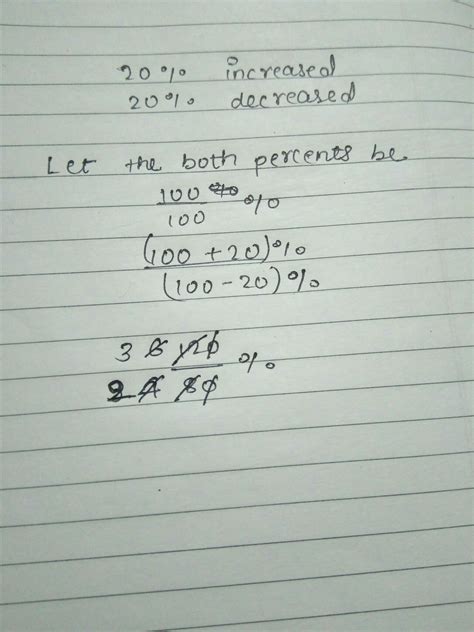 20% increased
20% decreased
Let the both percents be.
100 %
100 %
(100 + 20)%
(100 - 20)%
3 6 120 %
2 4 80